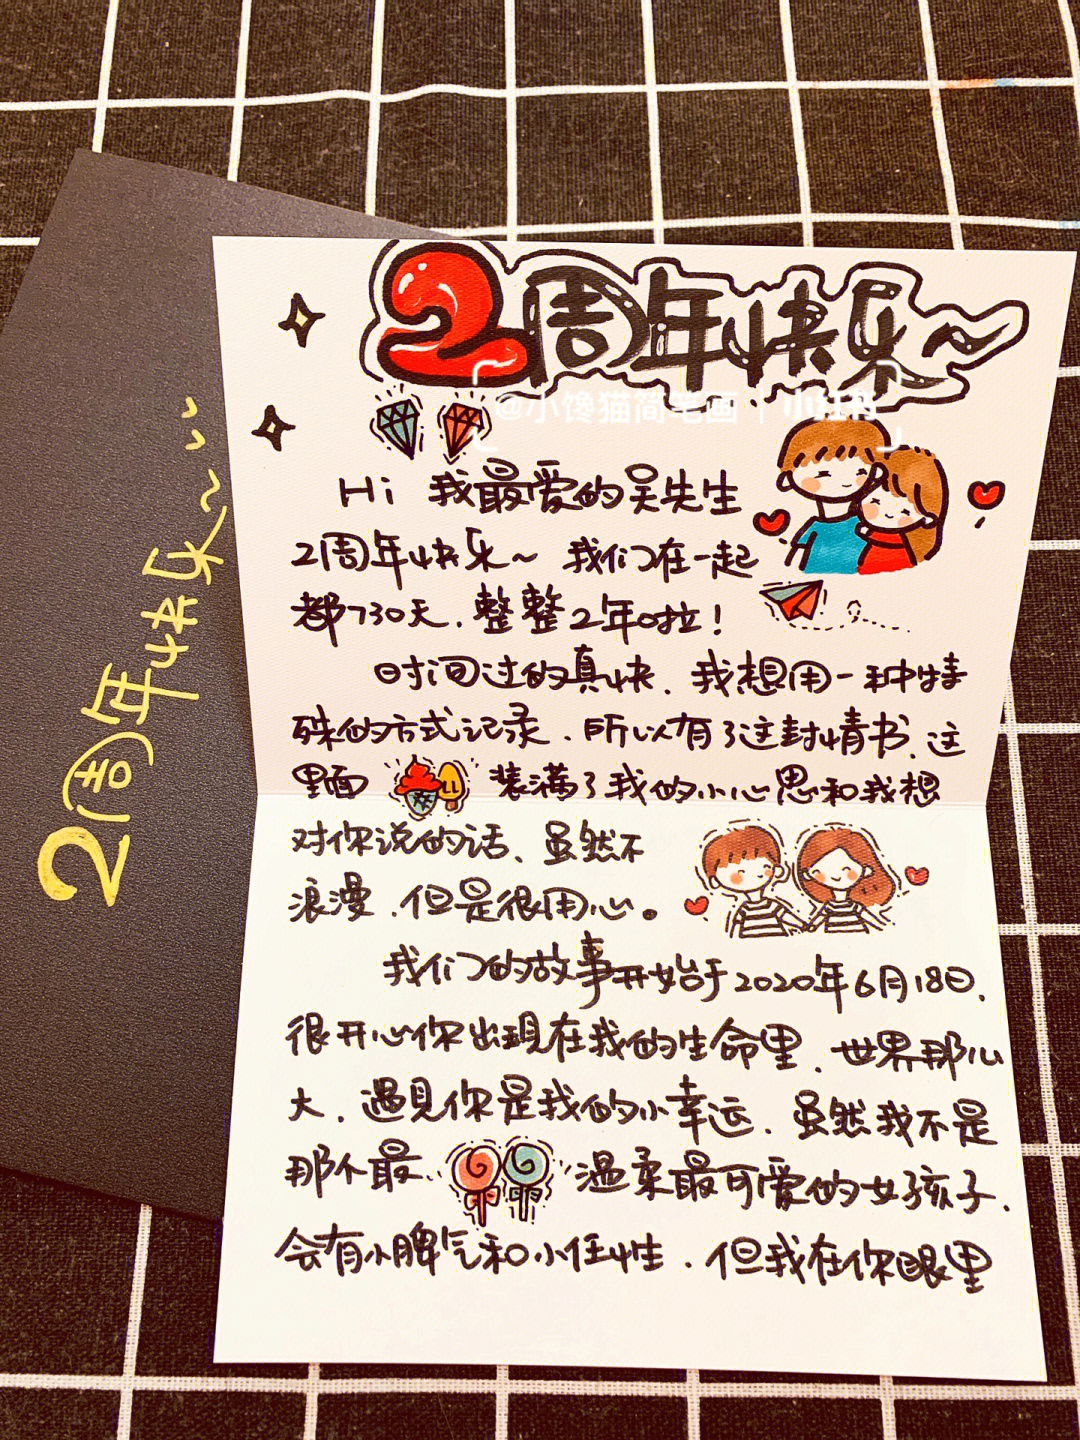 2周年快乐~
@小馋猫简笔画 | 小红书
Hi 我最爱的吴先生
2周年快乐~ 我们在一起
都730天,整整2年啦!
时间过的真快,我想用一种特
殊的方式记录,所以有了这封情书,这
里面 装满了我的小心思和我想
对你说的话、虽然不
浪漫,但是很用心。
我们的故事开始于2020年6月18日,
很开心你出现在我的生命里,世界那么
大,遇见你是我的小幸运,虽然我不是
那个最 温柔最可爱的女孩子,
会有小脾气和小任性,但我在你眼里
2周年快乐~